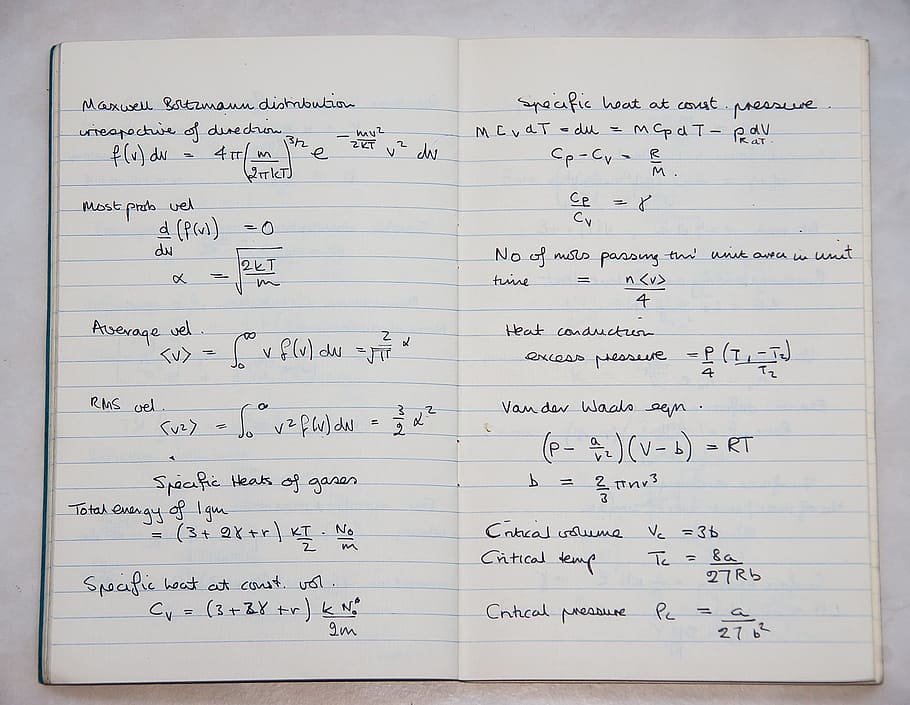 Maxwell Boltzmann distribution
irrespective of direction
f(v) dv = 4π(m/2πkT)^3/2 e^-mv²/2kT v² dv
Most prob vel
d/dv (f(v)) = 0
α = √(2kT/m)
Average vel.
<v> = ∫₀^∞ v f(v) dv = 2/√π α
RMS vel.
<v²> = ∫₀^∞ v² f(v) dv = 3/2 α²
Specific Heats of gases
Total energy of 1gm
= (3 + 2γ + r) kT/2 · N₀/m
Specific heat at const. vol.
Cv = (3 + 2γ + r) k N₀/2m
Specific heat at const. pressure.
M Cv dT = du = M Cp dT – p dV/dT
Cp – Cv = R/M.
Cp/Cv = γ
No of mols passing thro' unit area in unit
time = n<v>/4
Heat conduction
excess pressure = P/4 (T₁ – T₂)/T₂
Van der Waals eqn.
(P – a/v²)(V – b) = RT
b = 2/3 πnr³
Critical volume Vc = 3b
Critical temp Tc = 8a/27Rb
Critical pressure Pc = a/27b²